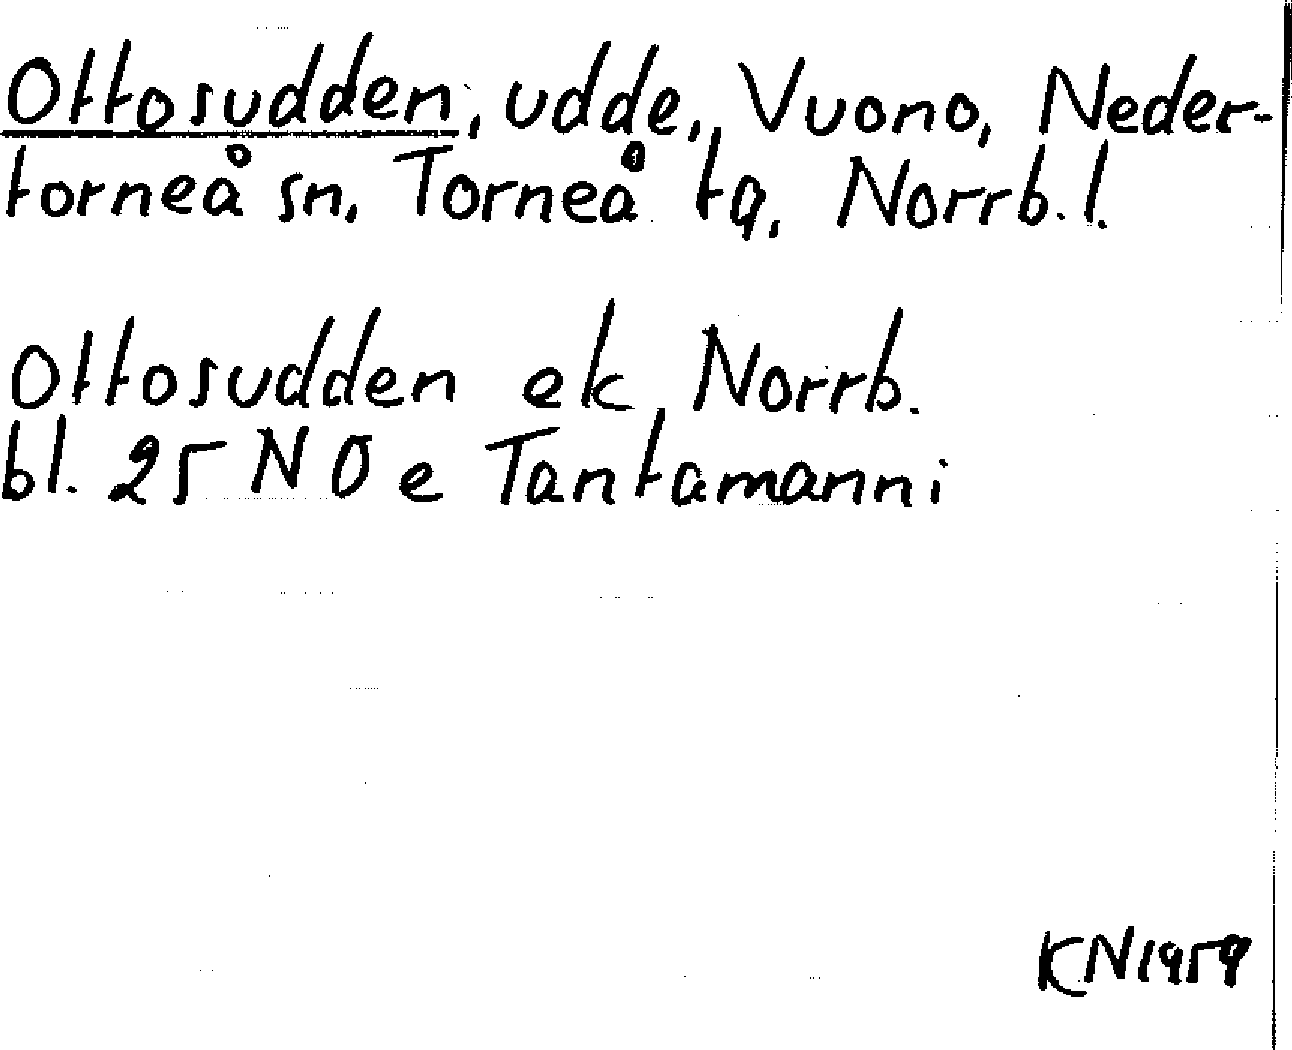 Ottosudden, udde, Vuono, Neder-
torneå sn, Torneå tg, Norrb. l.
Ottosudden ek Norrb.
bl. 25 NO e Tantamanni
KN 1959